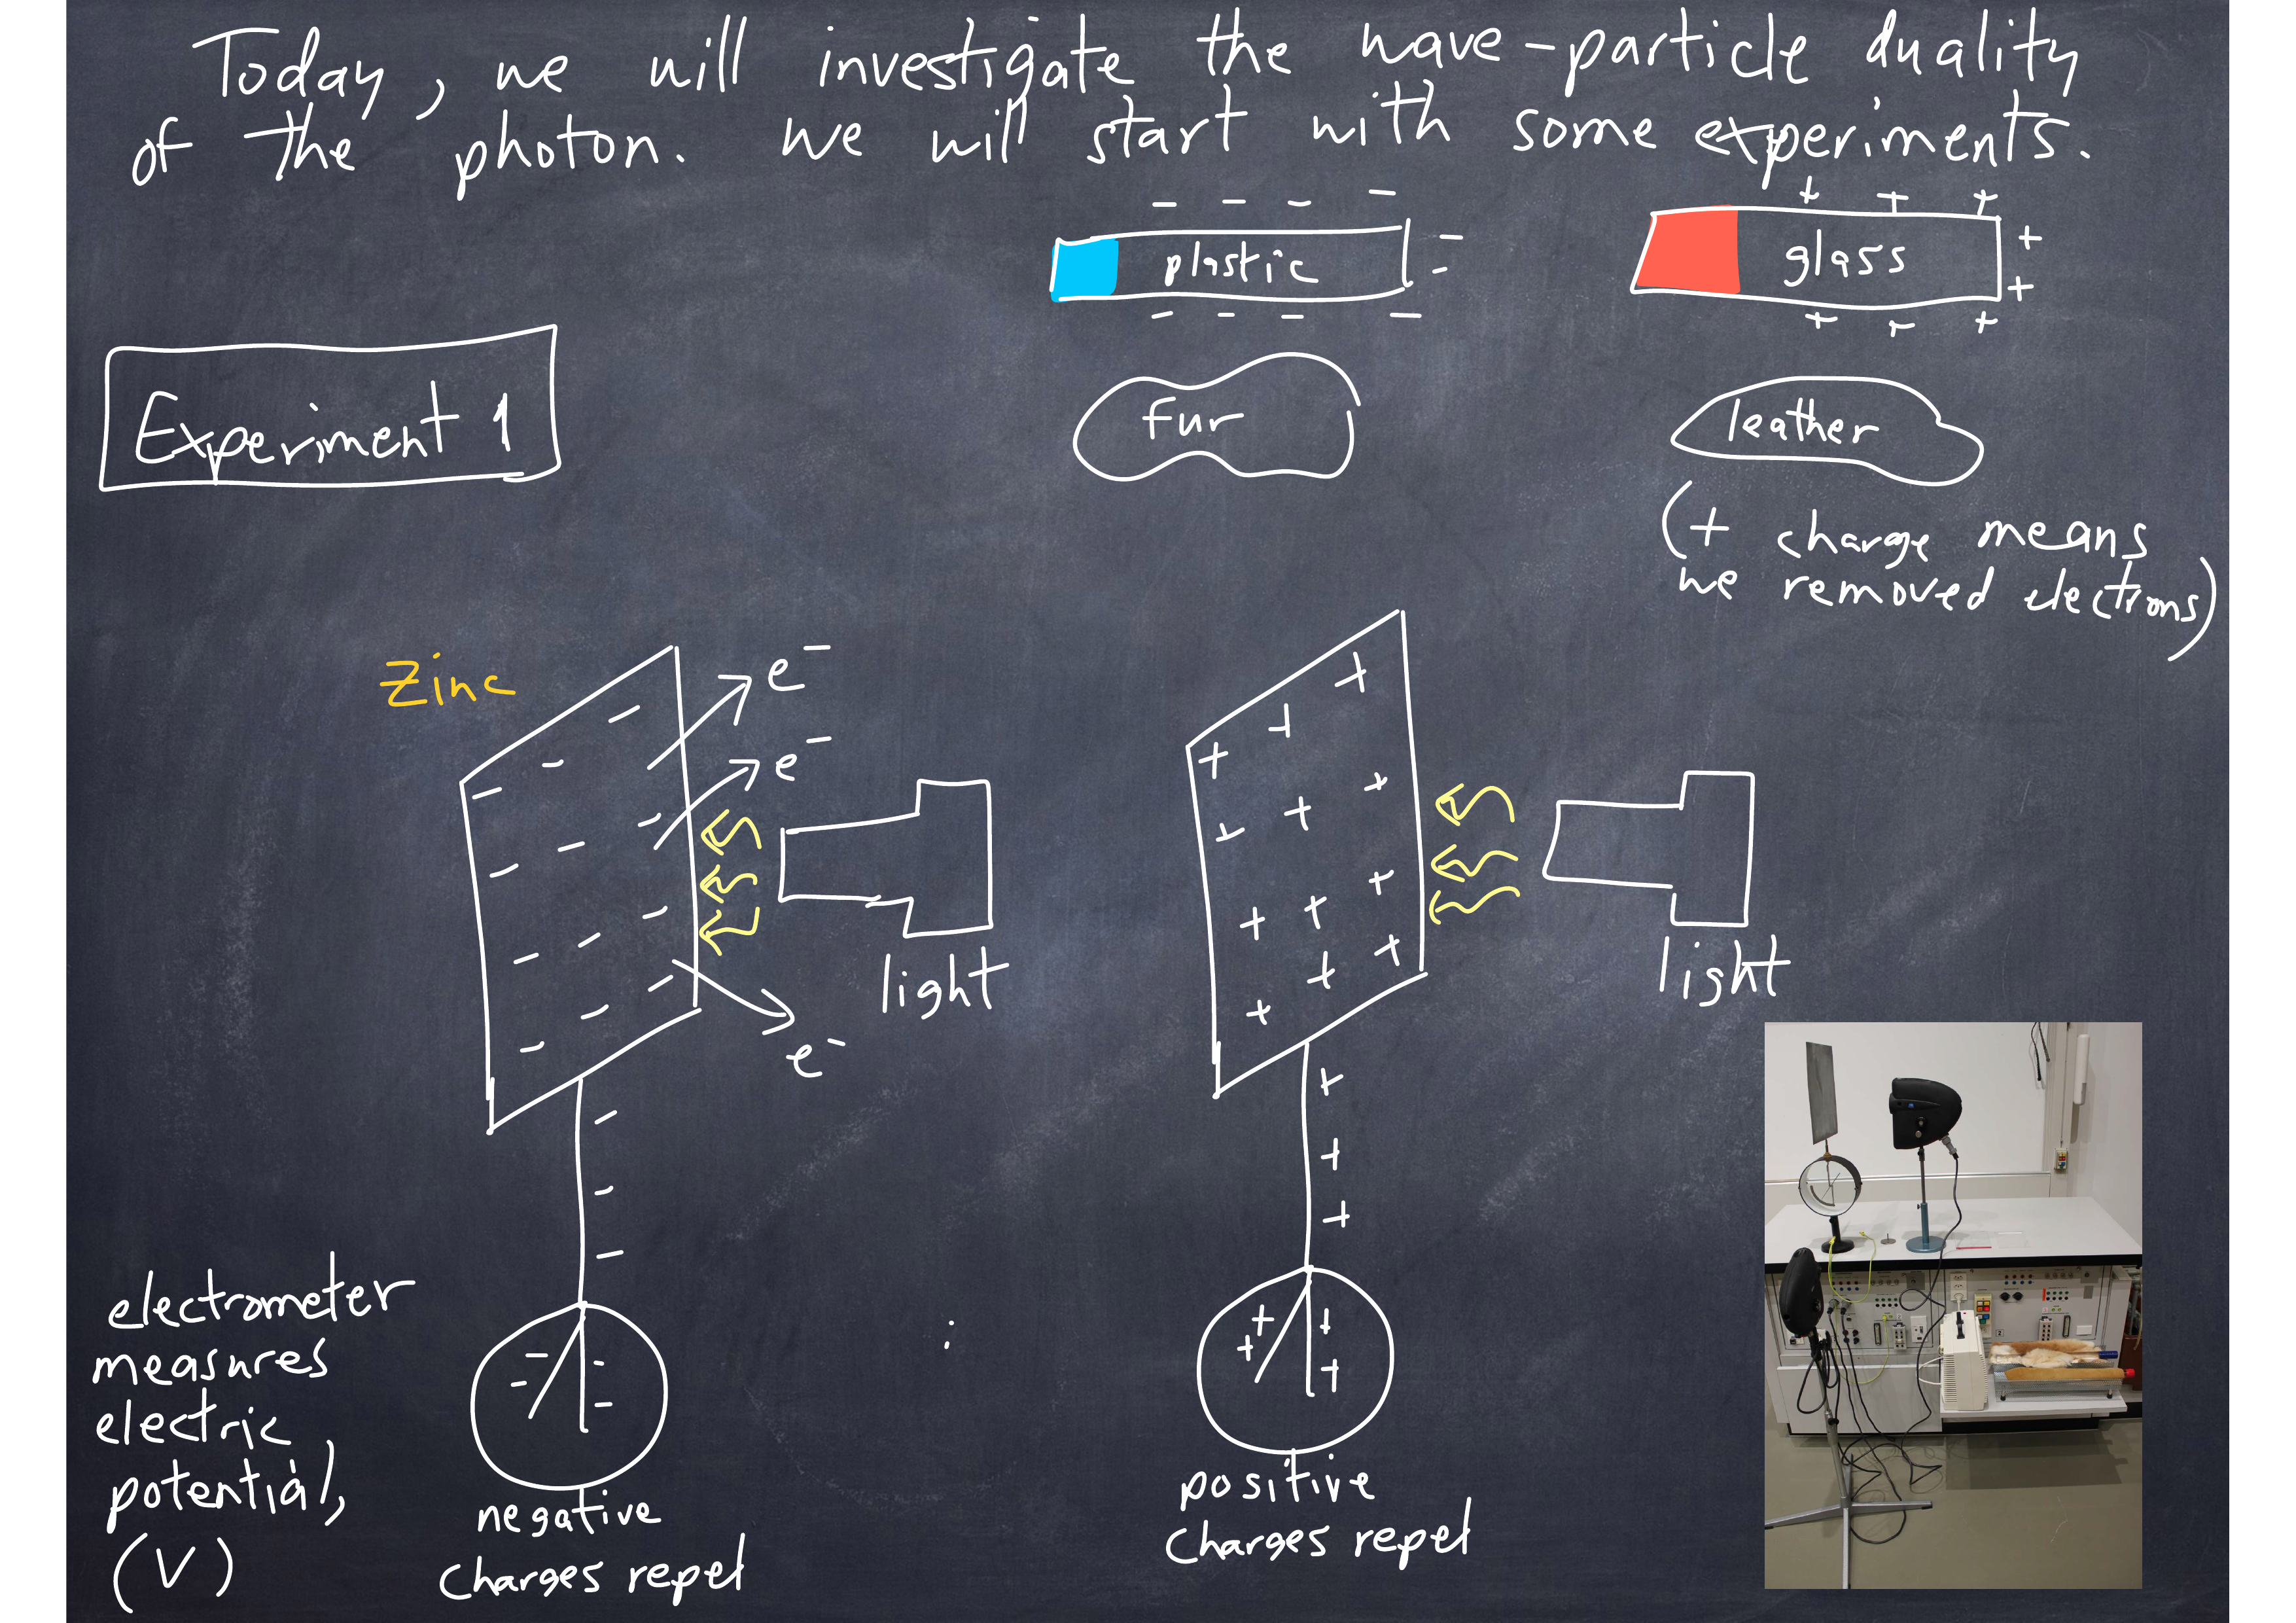 Today, we will investigate the wave-particle duality
of the photon. We will start with some experiments.
- - - -
plastic
- -
- - - -
+ + +
glass
+
+
+ + +
Experiment 1
fur
leather
(+ charge means
we removed electrons)
Zinc
e⁻
e⁻
e⁻
light
light
electrometer
measures
electric
potential,
(V)
negative
charges repel
positive
charges repel